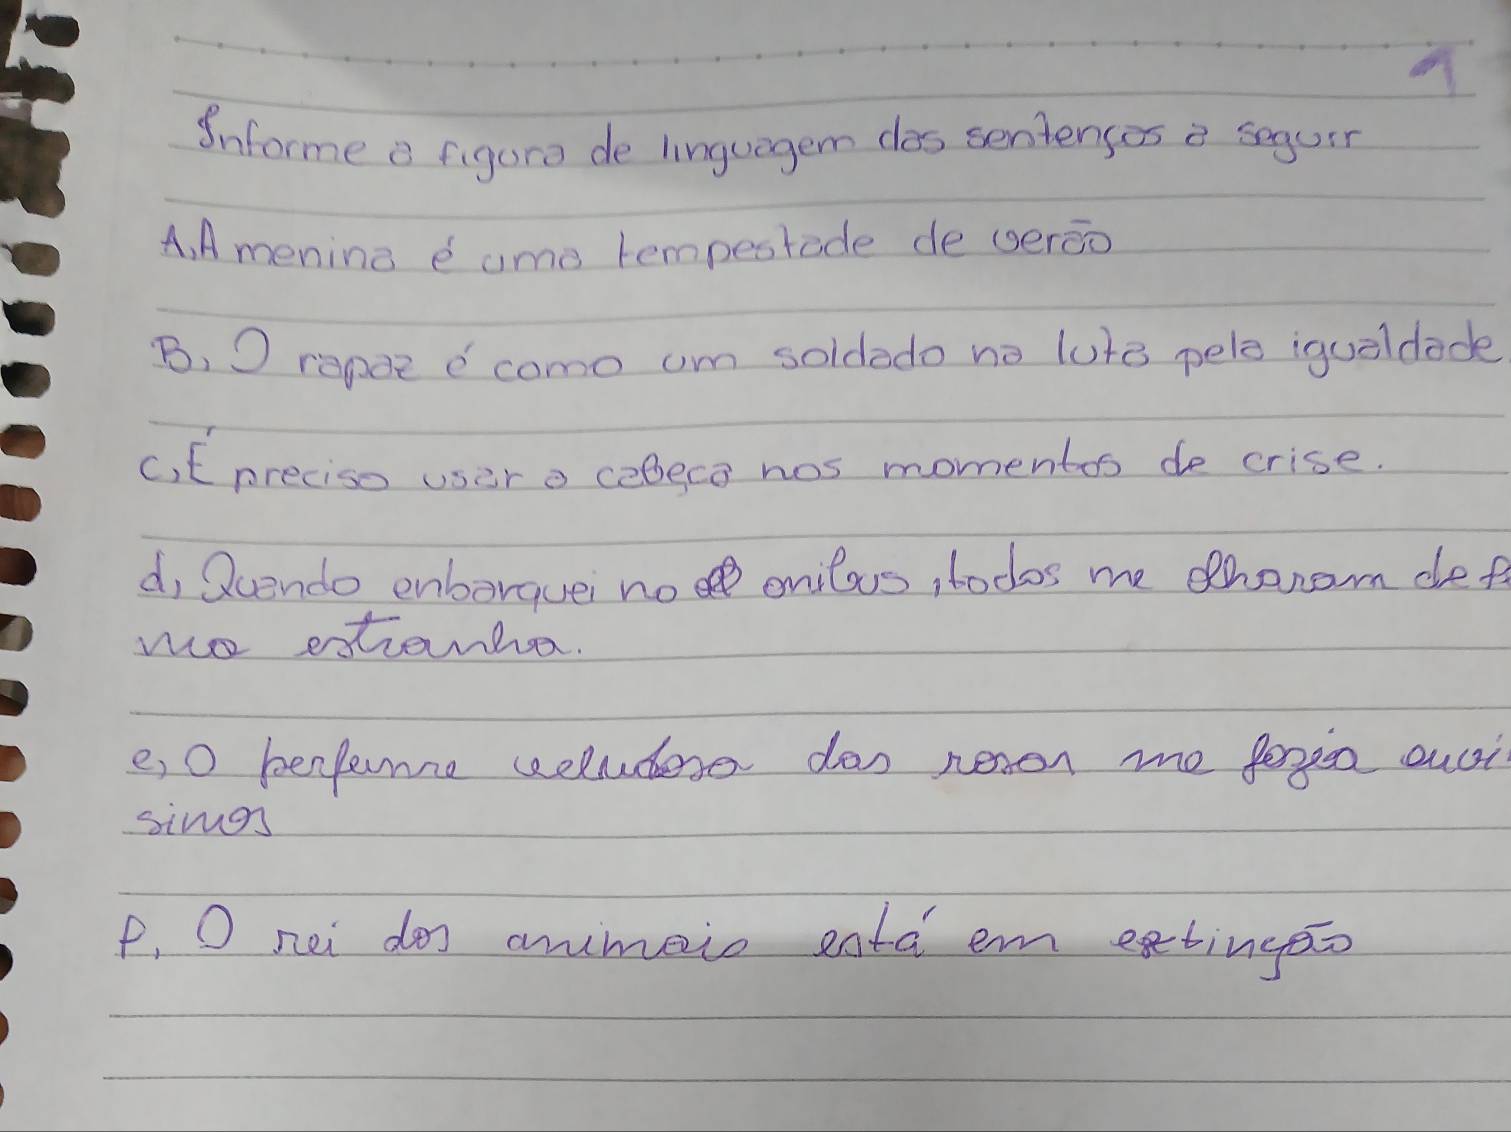 1
Informe a figura de linguagem das sentenças a seguir
A, A menina é uma tempestade de verão
B, O rapaz é como um soldado na luta pela igualdade
C, É preciso usar a cabeça nos momentos de crise.
d, Quando enbarquei no onibus, todos me olharam de
ma estranha.
e, O perfume veludoso das rosas me fazia ouvi
sinos
f, O rei dos animais está em extinção